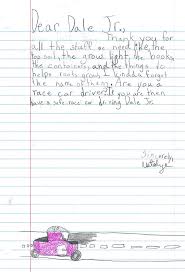 Dear Dale Jr.,
Thank you for
all the stuff we need like, the
top soil, the grow light, the books,
the containers, and the things to
helps roots grow I kindda forget
the name of them. Are you a
race car driver. If you are then
have a safe race car driving Dale Jr.
Sincerely,